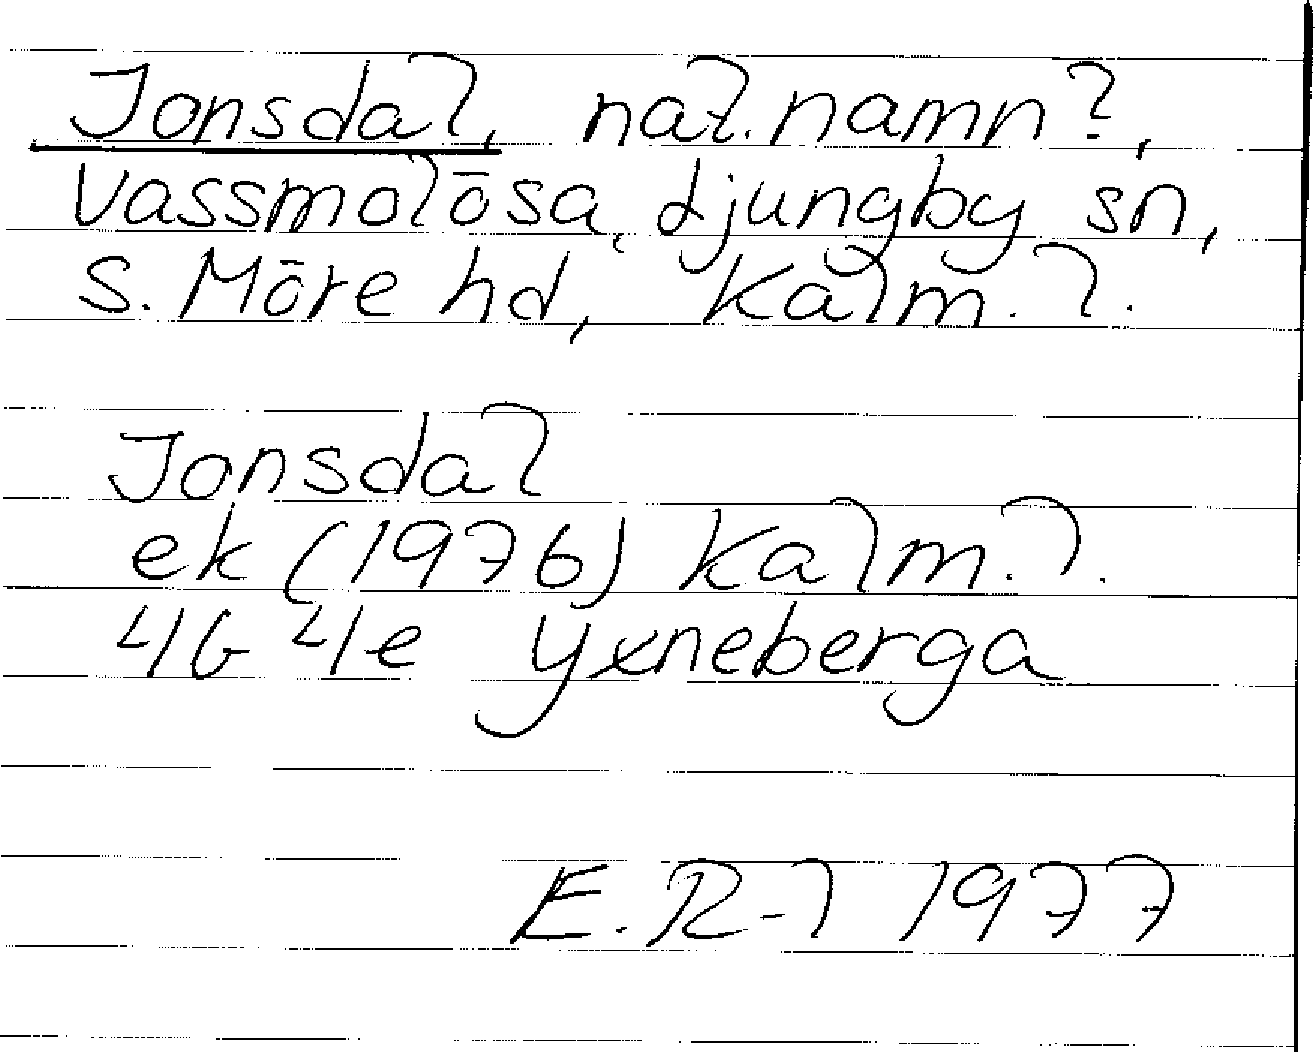 Jonsdal, nat.namn?,
Vassmolösa, Ljungby sn,
S. Möre hd, Kalm. l.
Jonsdal
ek (1976) Kalm. l.
4G 4e Yxneberga
E. R-l 1977